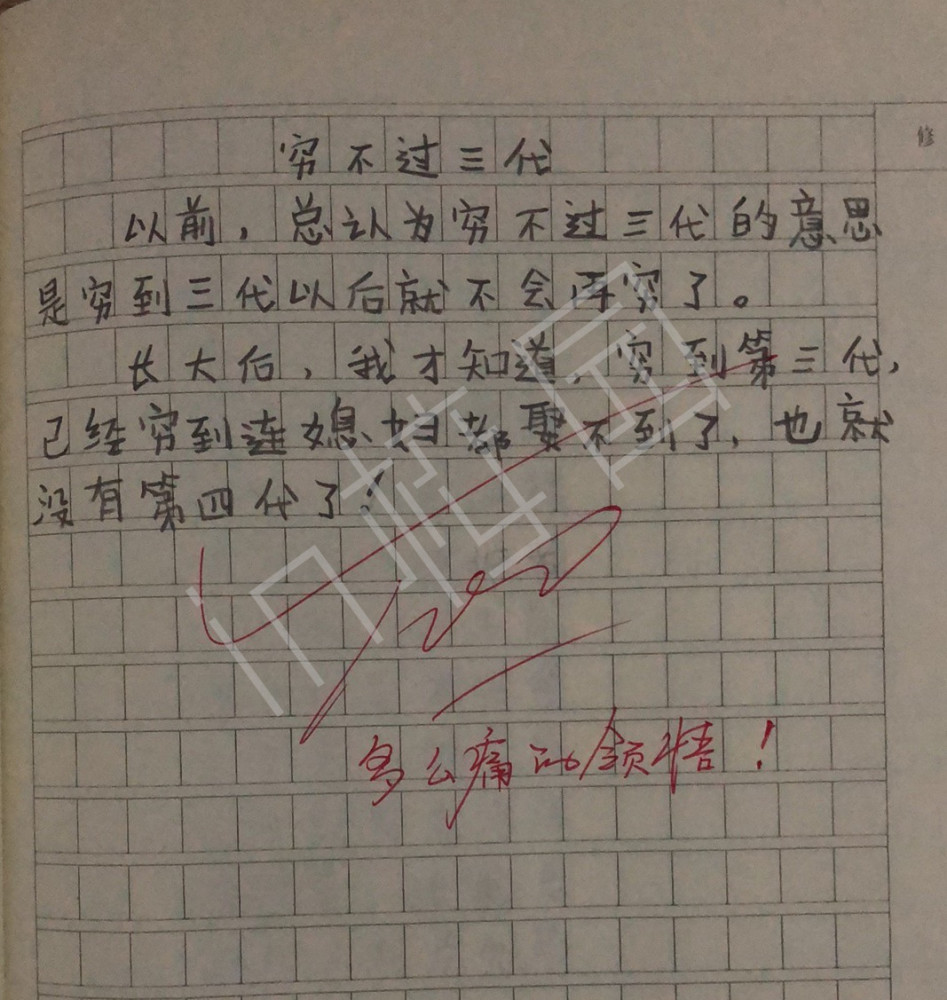 修
穷不过三代
以前，总认为穷不过三代的意思
是穷到三代以后就不会再穷了。
长大后，我才知道，穷到第三代，
已经穷到连媳妇都娶不到了，也就
没有第四代了！
多么痛的领悟！